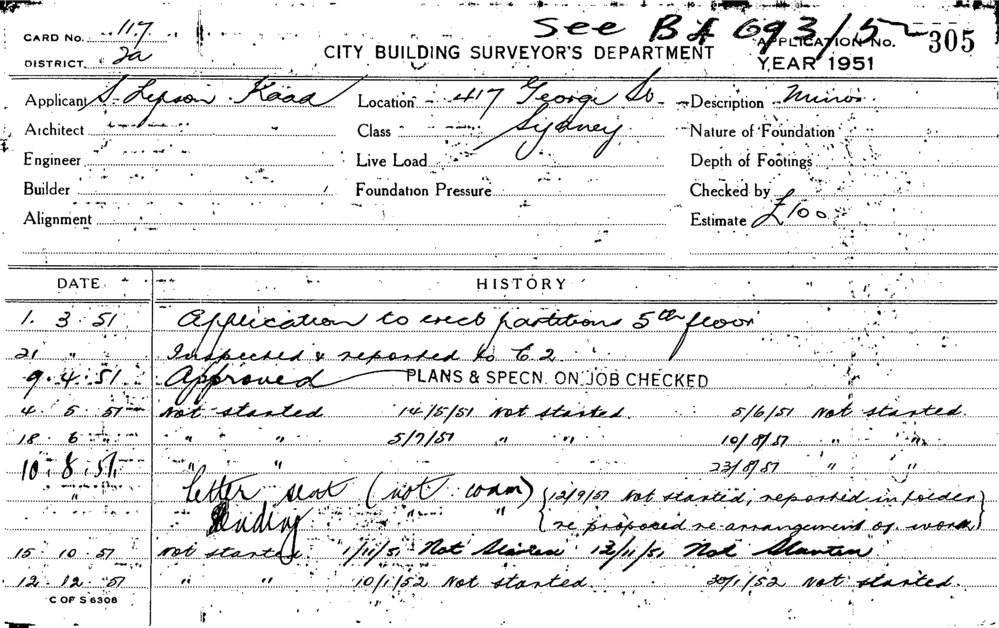 See BA 693/52
CARD No. 117
DISTRICT 2a
CITY BUILDING SURVEYOR'S DEPARTMENT
APPLICATION No. 305
YEAR 1951
Applicant S. Lipson Kaad Location 417 George St Description Minor
Architect Class Sydney Nature of Foundation
Engineer Live Load Depth of Footings
Builder Foundation Pressure Checked by
Alignment Estimate £100
DATE HISTORY
1. 3. 51 Application to erect partitions 5th floor
21 " Inspected & reported to C.2.
9. 4. 51 Approved PLANS & SPECN. ON JOB CHECKED
4. 5. 51 Not started 14/5/51 Not started. 5/6/51 Not started.
18. 6 " " " 5/7/51 " " 10/8/51 " "
10. 8. 51. " " 23/8/51 " "
" Letter sent (not comm) { 12/9/51 Not started, reported in folder
Pending " " re proposed re-arrangement of work }
15. 10. 51 Not started 1/11/51 Not Started 12/11/51 Not Started
12. 12. 51 " " 10/1/52 Not started. 30/1/52 Not started.
C OF S 6308